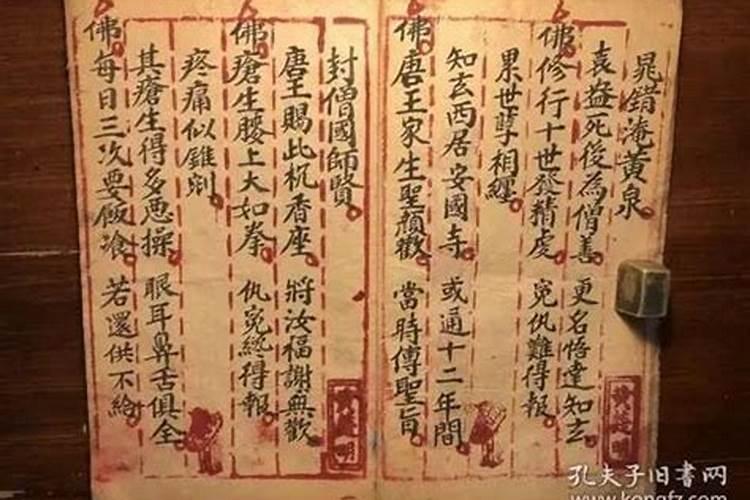 晁錯淹黃泉
袁盎死後為僧善 更名悟達知玄
佛修行十世發精虔 冤仇難得報
累世孽相纏
知玄西居安國寺 或通十二年間
佛唐王家生聖顏歡 當時傳聖旨
封僧國師賢
唐王賜此杌香座 將汝福謝無歡
佛瘡生腰上大如拳 仇冤總得報
疼痛似錐剜
其瘡生得多悪操 眼耳鼻舌俱全
佛每日三次要飯飡 若還供不給
孔夫子旧書网
www.kongfz.com